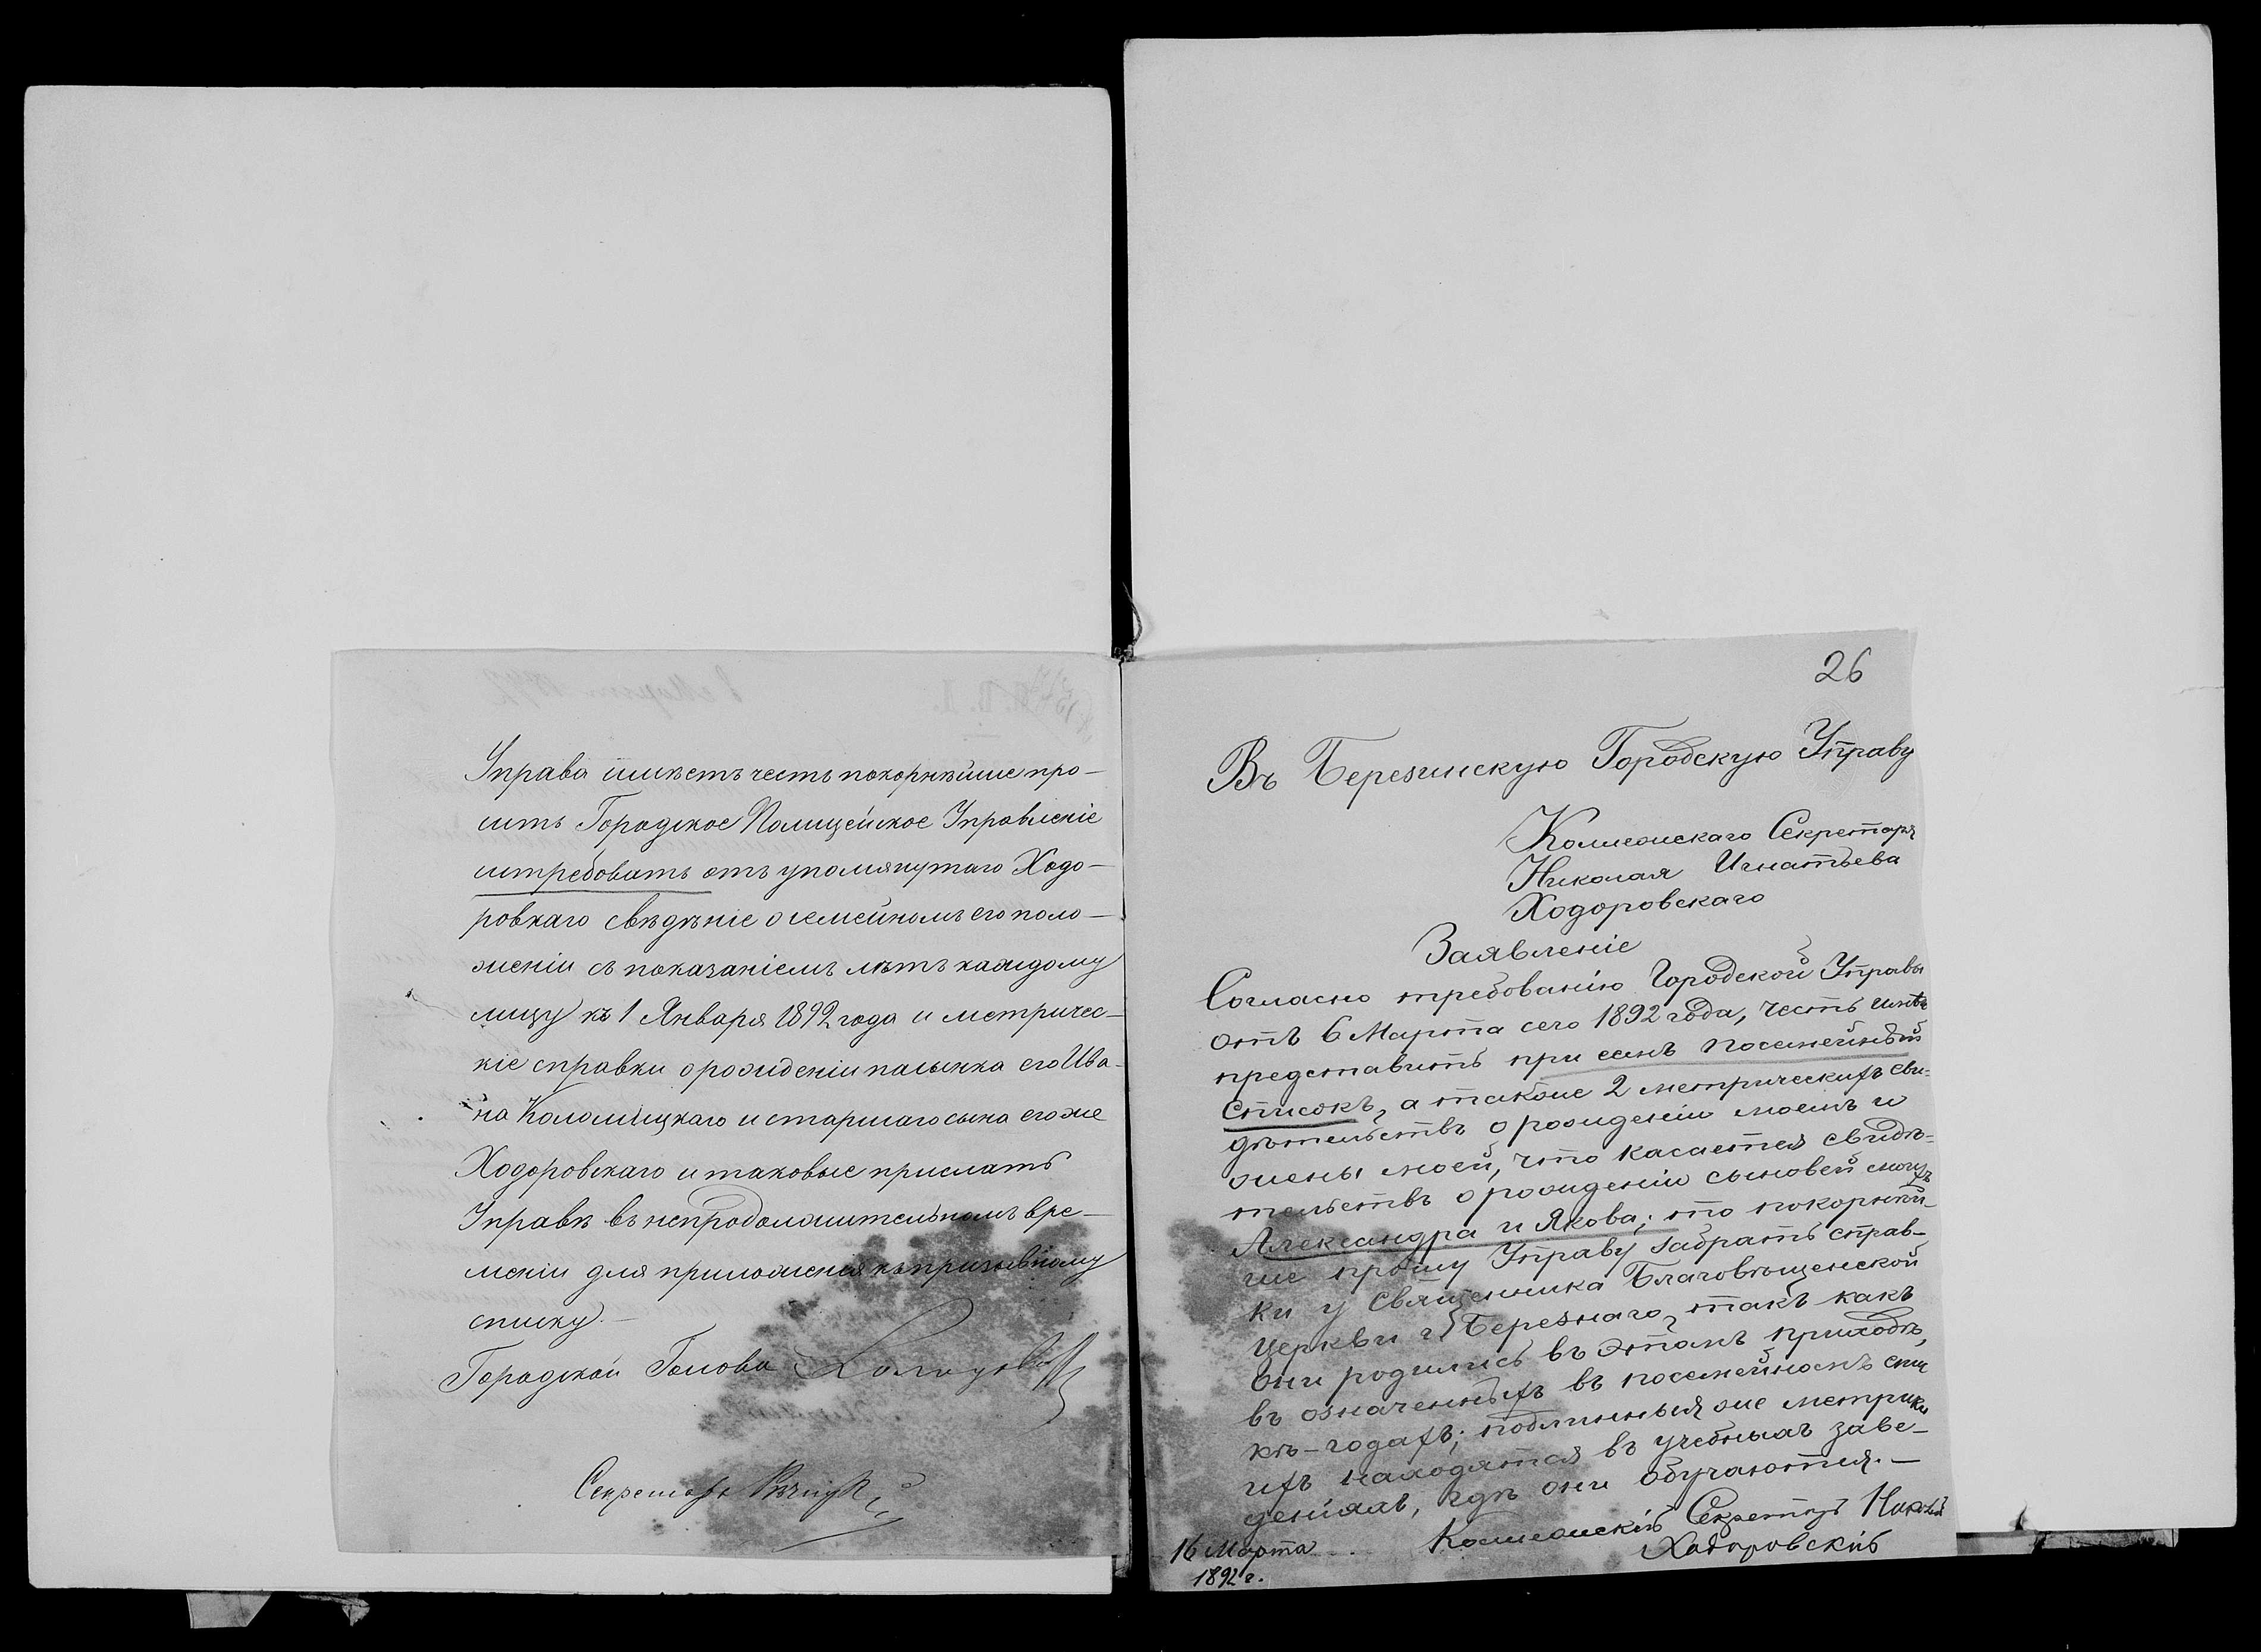 Управа имѣетъ честь покорнѣйше про-
сить Городское Полицейское Управленіе
истребовать отъ упомянутаго Ходо-
ровскаго свѣдѣніе о семейномъ его поло-
женіи съ показаніемъ лѣтъ каждому
лицу къ 1 Января 1892 года и метричес-
кіе справки о рожденіи пасынка его Ива-
на Коломійцкаго и старшаго сына его же
Ходоровскаго и таковые прислать
Управѣ въ непродолжительномъ вре-
мени для приложенія къ призывному
списку.-
Городской Голова
Секретарь
26
Въ Березинскую Городскую Управу
Коллежскаго Секретаря
Николая Игнатьева
Ходоровскаго
Заявленіе
Согласно требованію Городской Управы
отъ 6 Марта сего 1892 года, честь имѣю
представить при семъ посемейный
списокъ, а также 2 метрическихъ сви-
дѣтельствъ о рожденіи моемъ и
жены моей, что касается свидѣ-
тельствъ о рожденіи сыновей моихъ
Александра и Якова; то покорнѣй-
ше прошу Управу забрать справ-
ки у Священника Благовѣщенской
церкви г. Березнаго, такъ какъ
они родились въ этомъ приходѣ,
въ означенныхъ въ посемейномъ спис-
кѣ-годахъ; подлинныя же метрики
ихъ находятся въ учебныхъ заве-
деніяхъ, гдѣ они обучаются.-
Коллежскій Секретарь Николай
Ходоровскій
16 Марта
1892 г.